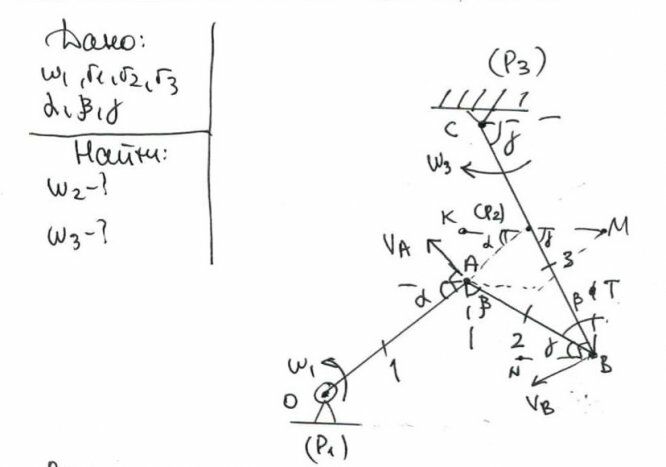 Дано:
ω₁, r₁, r₂, r₃
α, β, γ
Найти:
ω₂-?
ω₃-?
(P₃)
C
γ
ω₃
K
(P₂)
α
γ
M
V_A
A
3
α
β
β
T
1
2
γ
N
B
ω₁
O
V_B
(P₁)